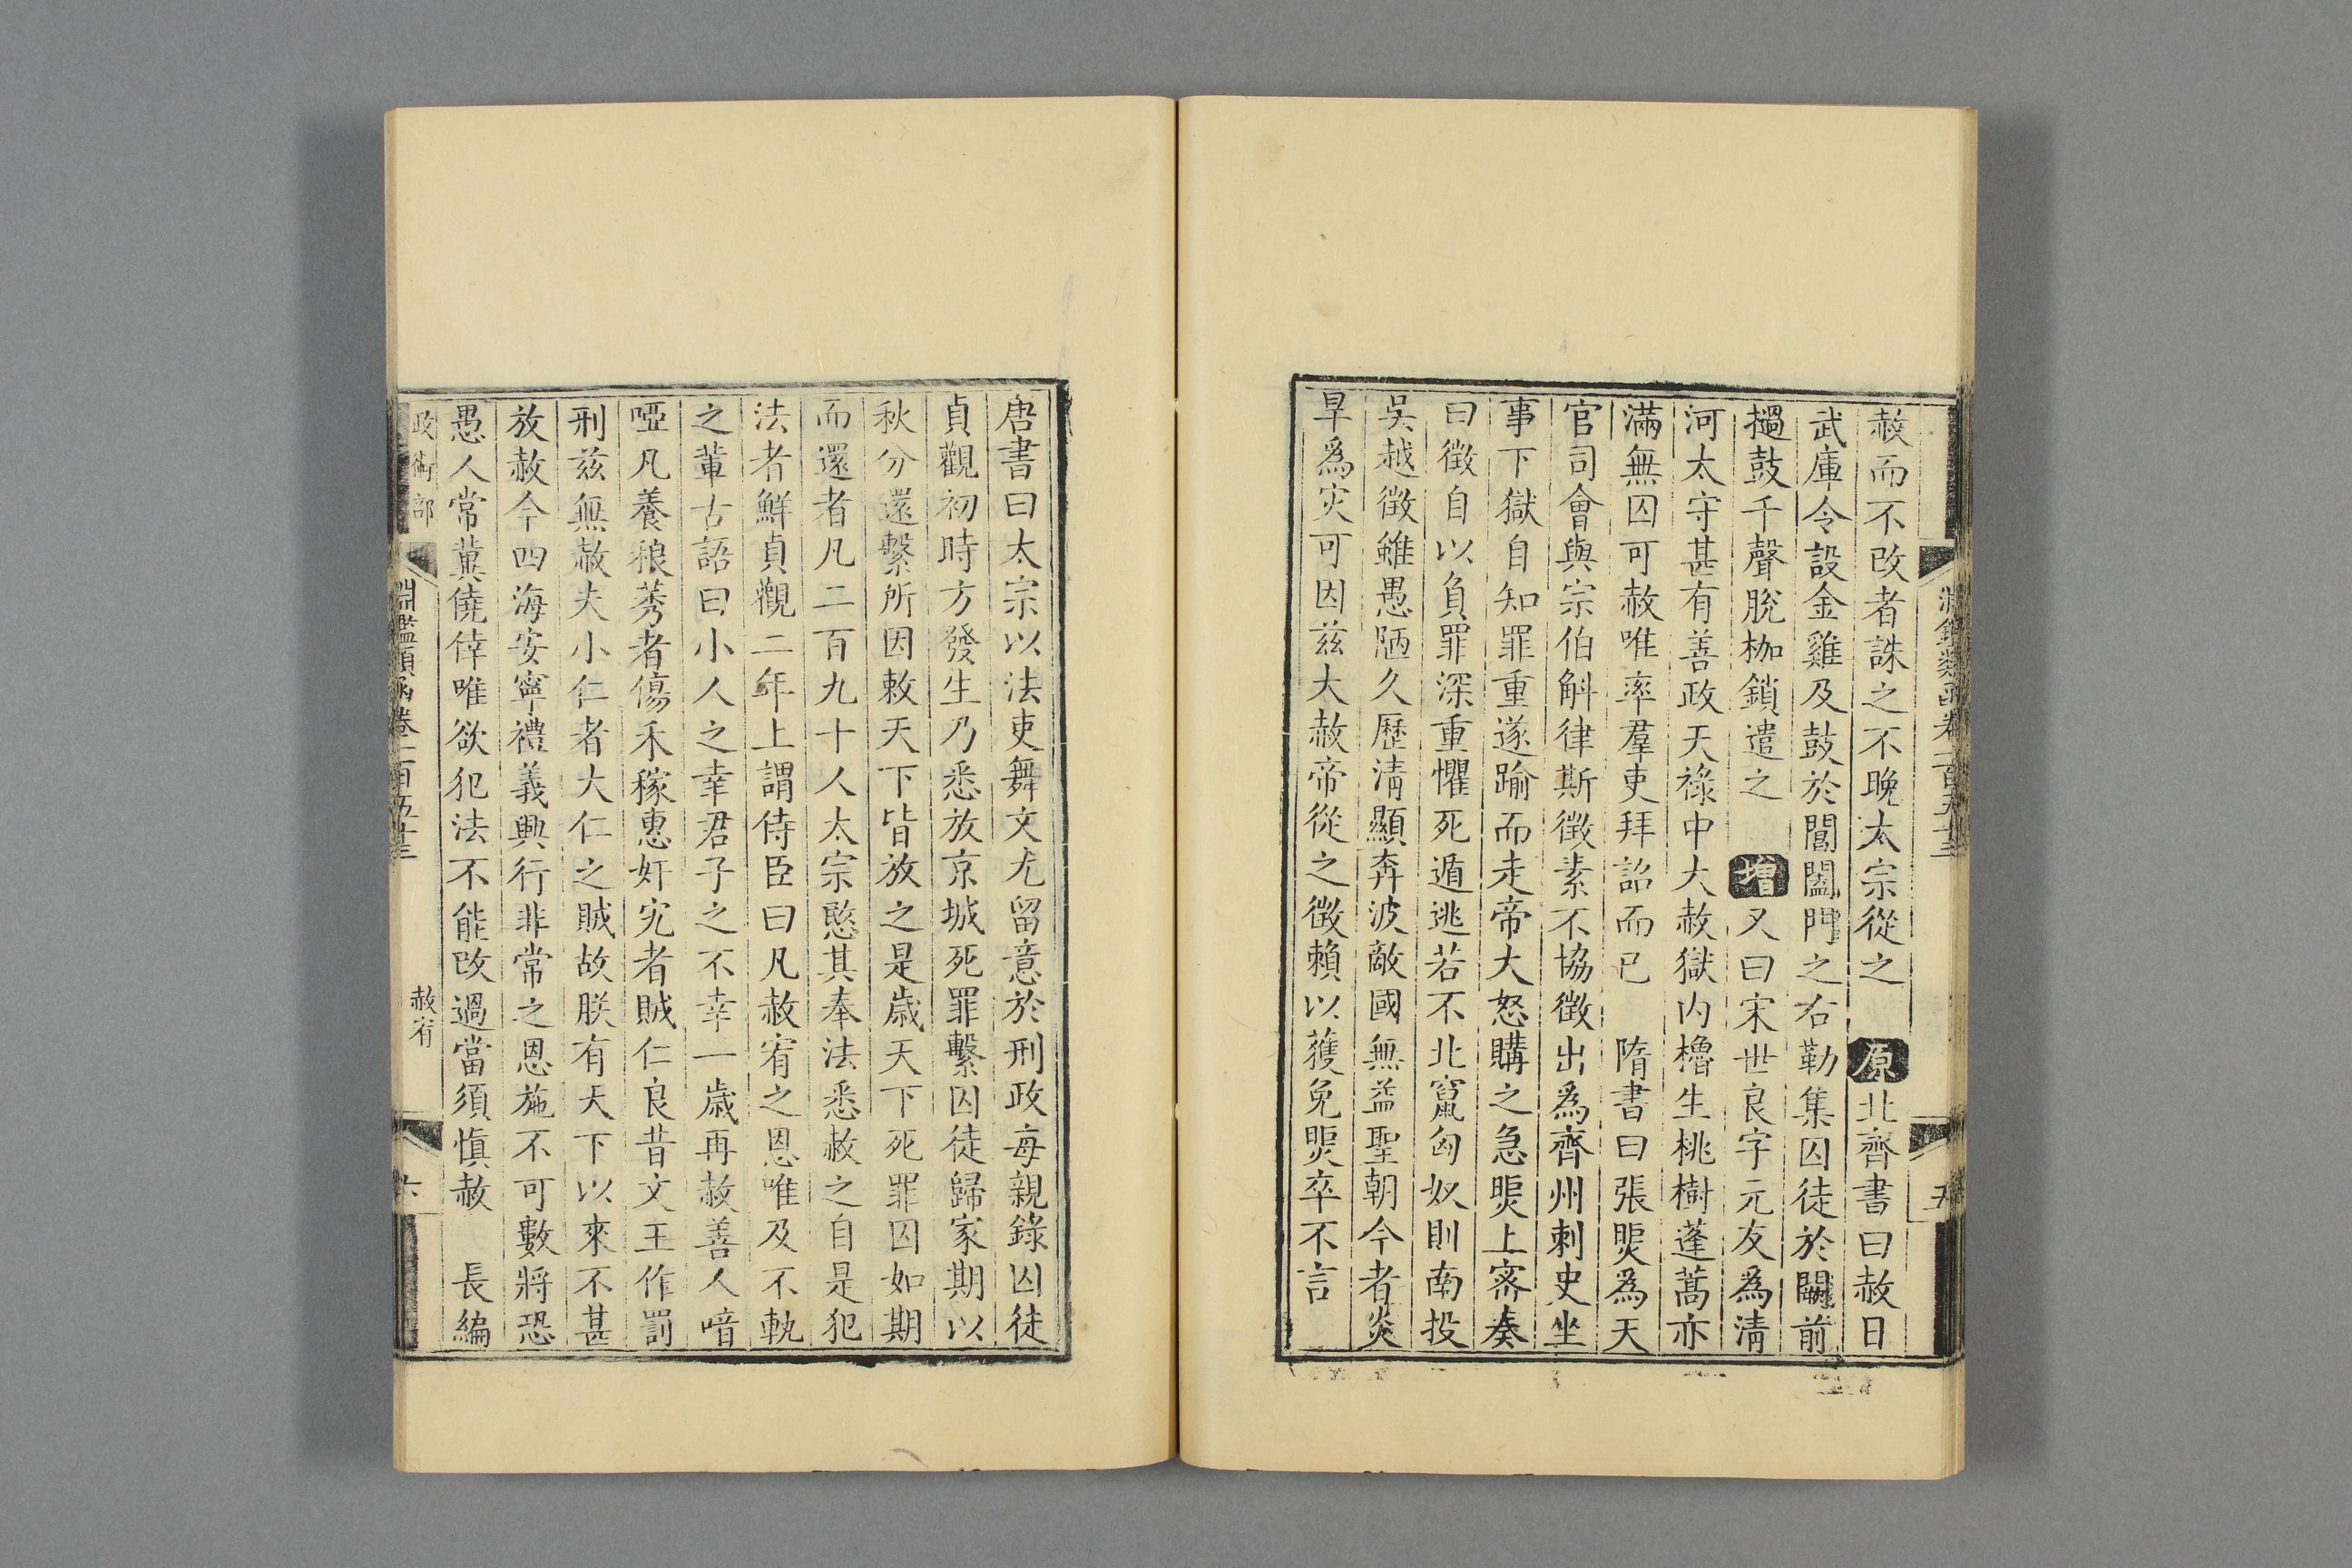 赦而不改者誅之不晚太宗從之　原北齊書曰赦日
武庫令設金雞及鼓於閶闔門之右勒集囚徒於闕前
撾鼓千聲脫枷鎖遣之　增又曰宋世良字元友爲淸
河太守甚有善政天祿中大赦獄内櫓生桃樹蓬蒿亦
滿無囚可赦唯率羣吏拜詔而已　隋書曰張煚爲天
官司會與宗伯斛律斯徵素不協徵出爲齊州刺史坐
事下獄自知罪重遂踰而走帝大怒購之急煚上密奏
曰徵自以負罪深重懼死遁逃若不北竄匈奴則南投
吳越徵雖愚陋久歷淸顯奔波敵國無益聖朝今者炎
旱爲灾可因兹大赦帝從之徵賴以獲免煚卒不言
淵鑑類函卷一百五十三
五
唐書曰太宗以法吏舞文尤留意於刑政每親錄囚徒
貞觀初時方發生乃悉放京城死罪繫囚徒歸家期以
秋分還繫所因敕天下皆放之是歳天下死罪囚如期
而還者凡二百九十人太宗愍其奉法悉赦之自是犯
法者鮮貞觀二年上謂侍臣曰凡赦宥之恩唯及不軌
之輩古語曰小人之幸君子之不幸一歳再赦善人喑
啞凡養稂莠者傷禾稼惠奸宄者賊仁良昔文王作罰
刑兹無赦夫小仁者大仁之賊故朕有天下以來不甚
放赦今四海安寧禮義興行非常之恩施不可數將恐
愚人常冀僥倖唯欲犯法不能改過當須愼赦　長編
政術部　淵鑑類函卷一百五十三　赦宥　六